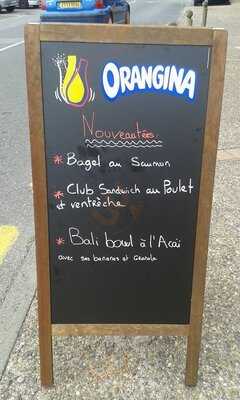 ORANGINA
Nouveautées
* Bagel au Saumon
* Club Sandwich au Poulet
et ventrèche
* Bali bowl à l'Açai
avec ses bananes et Granola